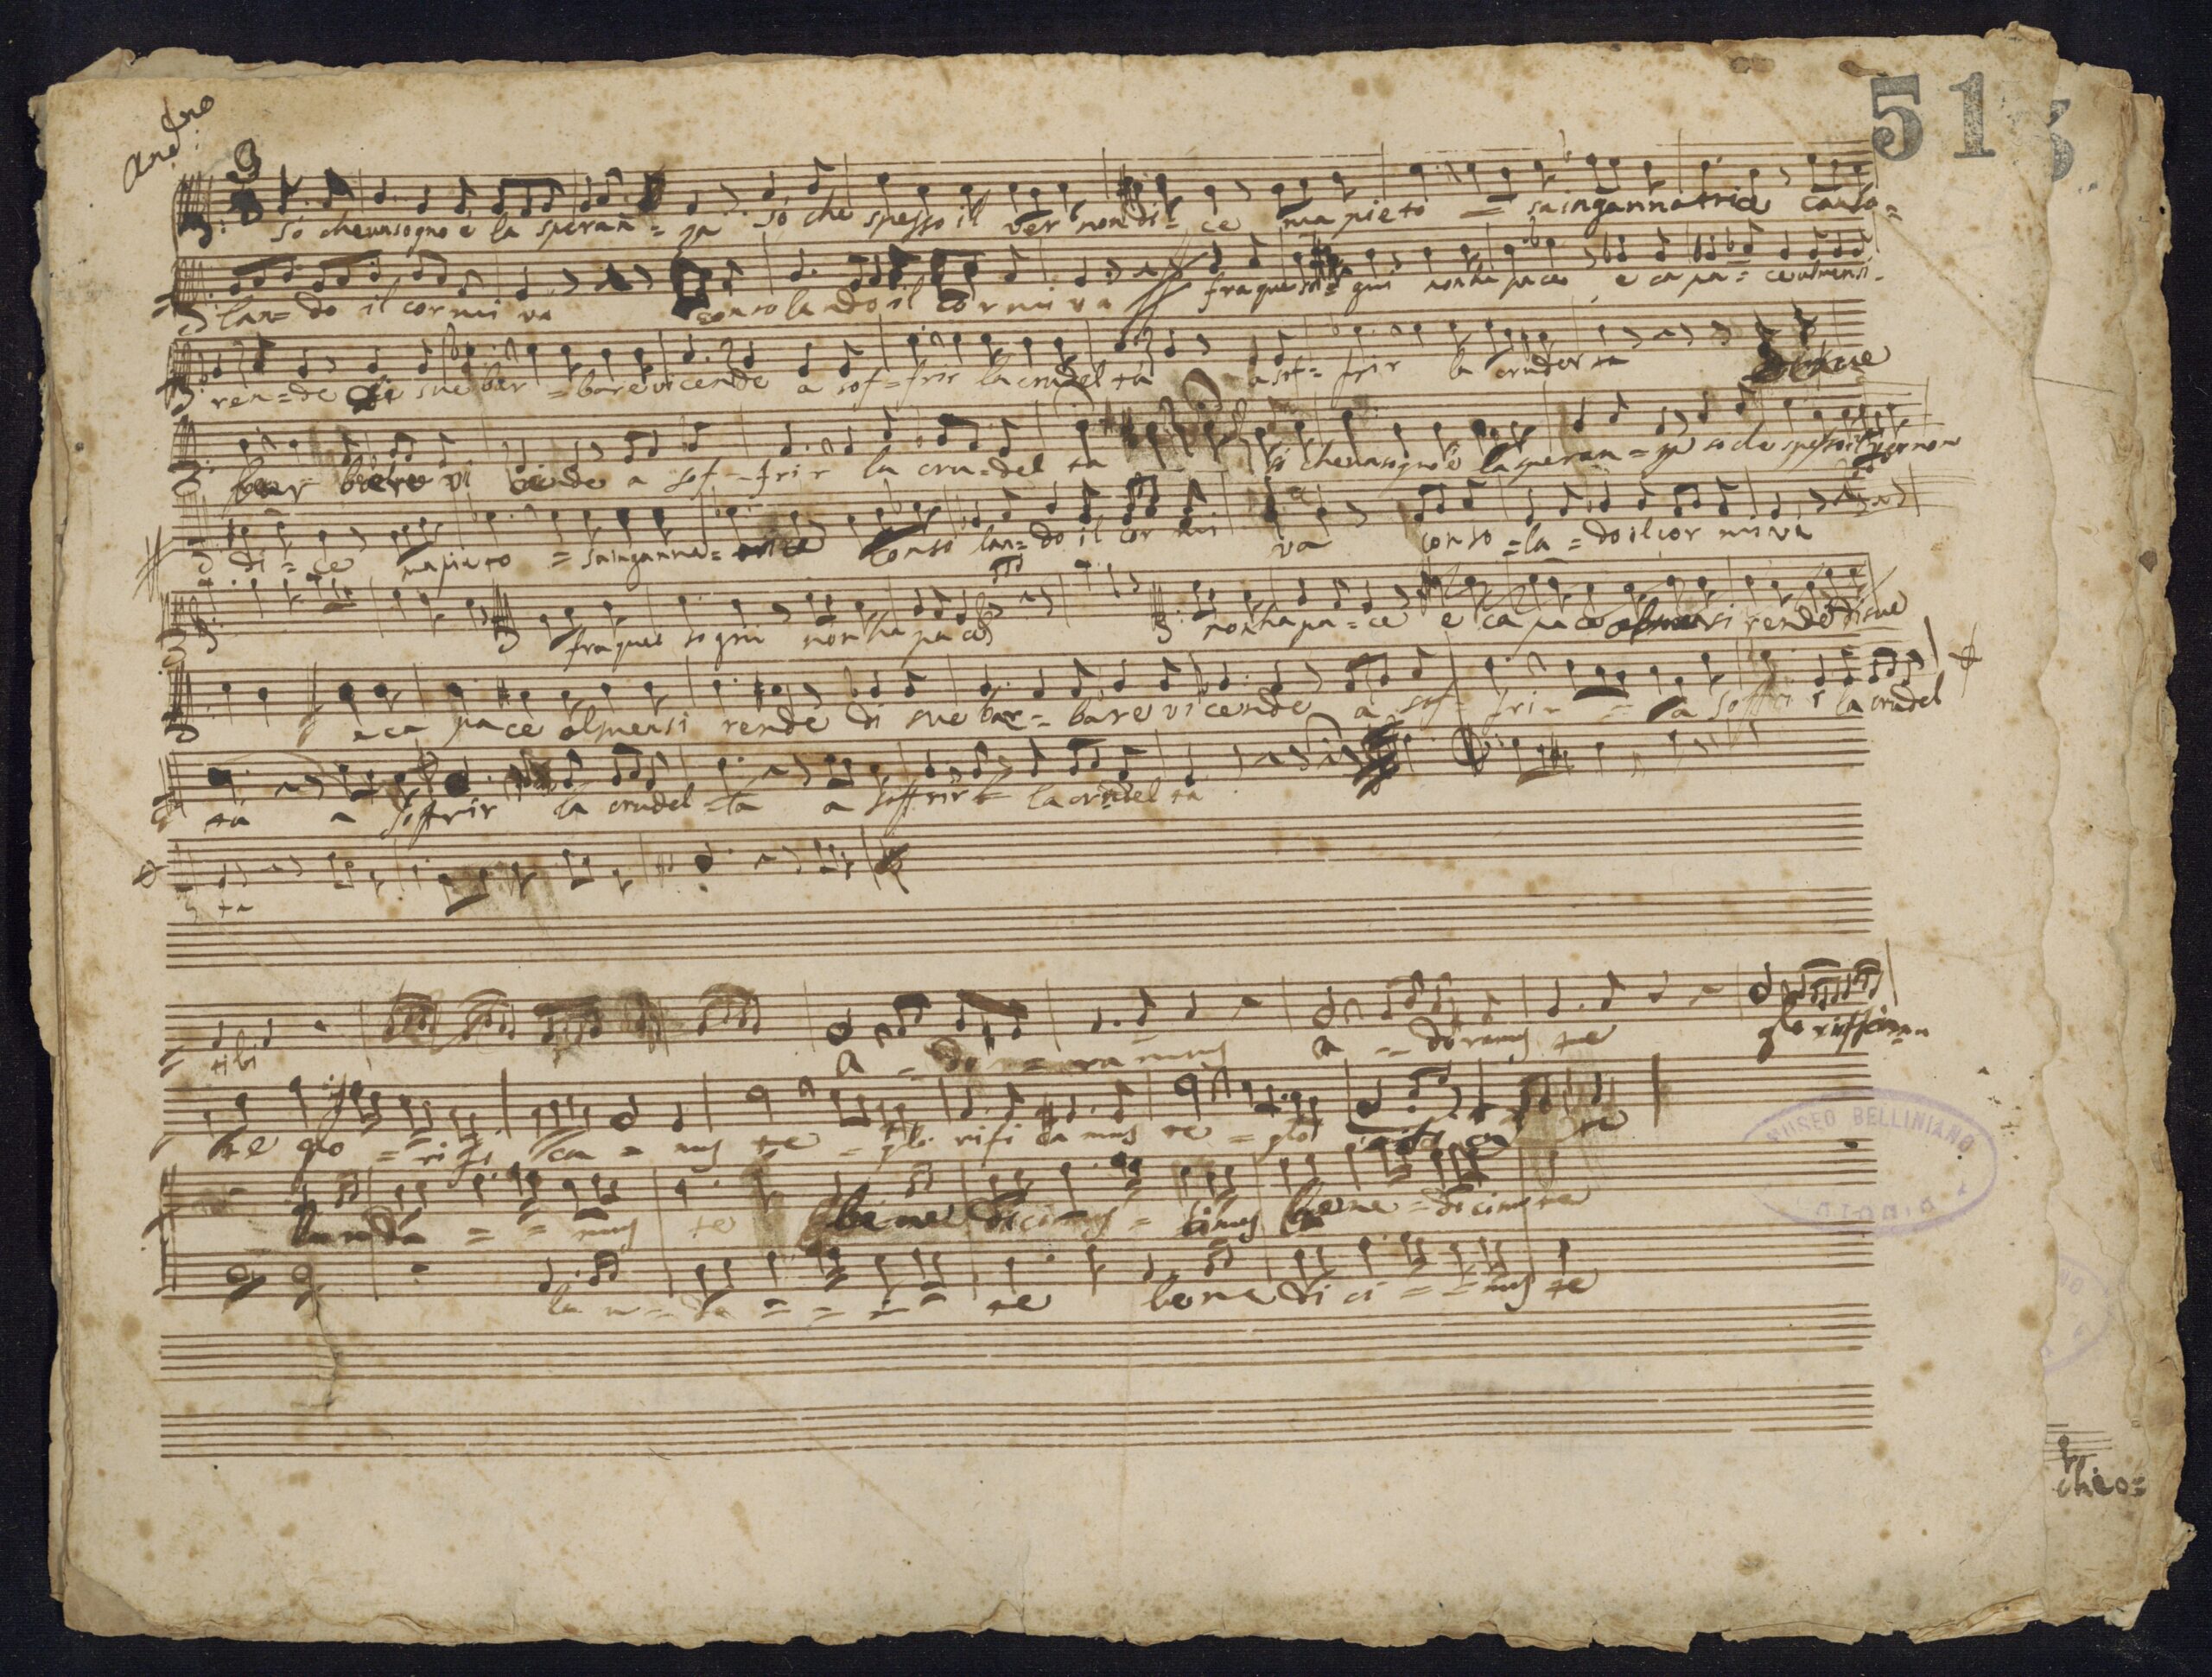 51
And.no
3
8
sò che un sogno è la speran = za sò che spesso il ver non di = ce ma pieto = sa ingannatrice conso =
lan = do il cor mi và consolando il cor mi va fra quei so = gni non ha pace e capa = ce almen si
ren = de di sue bar = bare vicende a sof = frir la crudel tà a sof = frir la crudel ta di sue
bar bare vi cende a sof = frir la cru = del ta sò che un sogno è la speran = za so che spesso il ver non
di = ce ma pieto = sa inganna = trice conso lan = do il cor mi va conso = la = do il cor mi và
fra quei sogni non ha pace non ha pa = ce e capace almen si rende di sue
a ca pace almen si rende di sue bar = bare vicende a sof = frir = a soffrir la crudel
tà a soffrir la crudel = ta a soffrir la crudel ta
ta
tibi A = do = ramus a = doramus te glorifica
te glo = rifi ca = mus te = glorifi ca mus te = glo te
lauda = = mus te bene dicimus = cimus bene = dicimus te
lau = da = = = te bene di ci = = mus te
MUSEO BELLINIANO
chio =